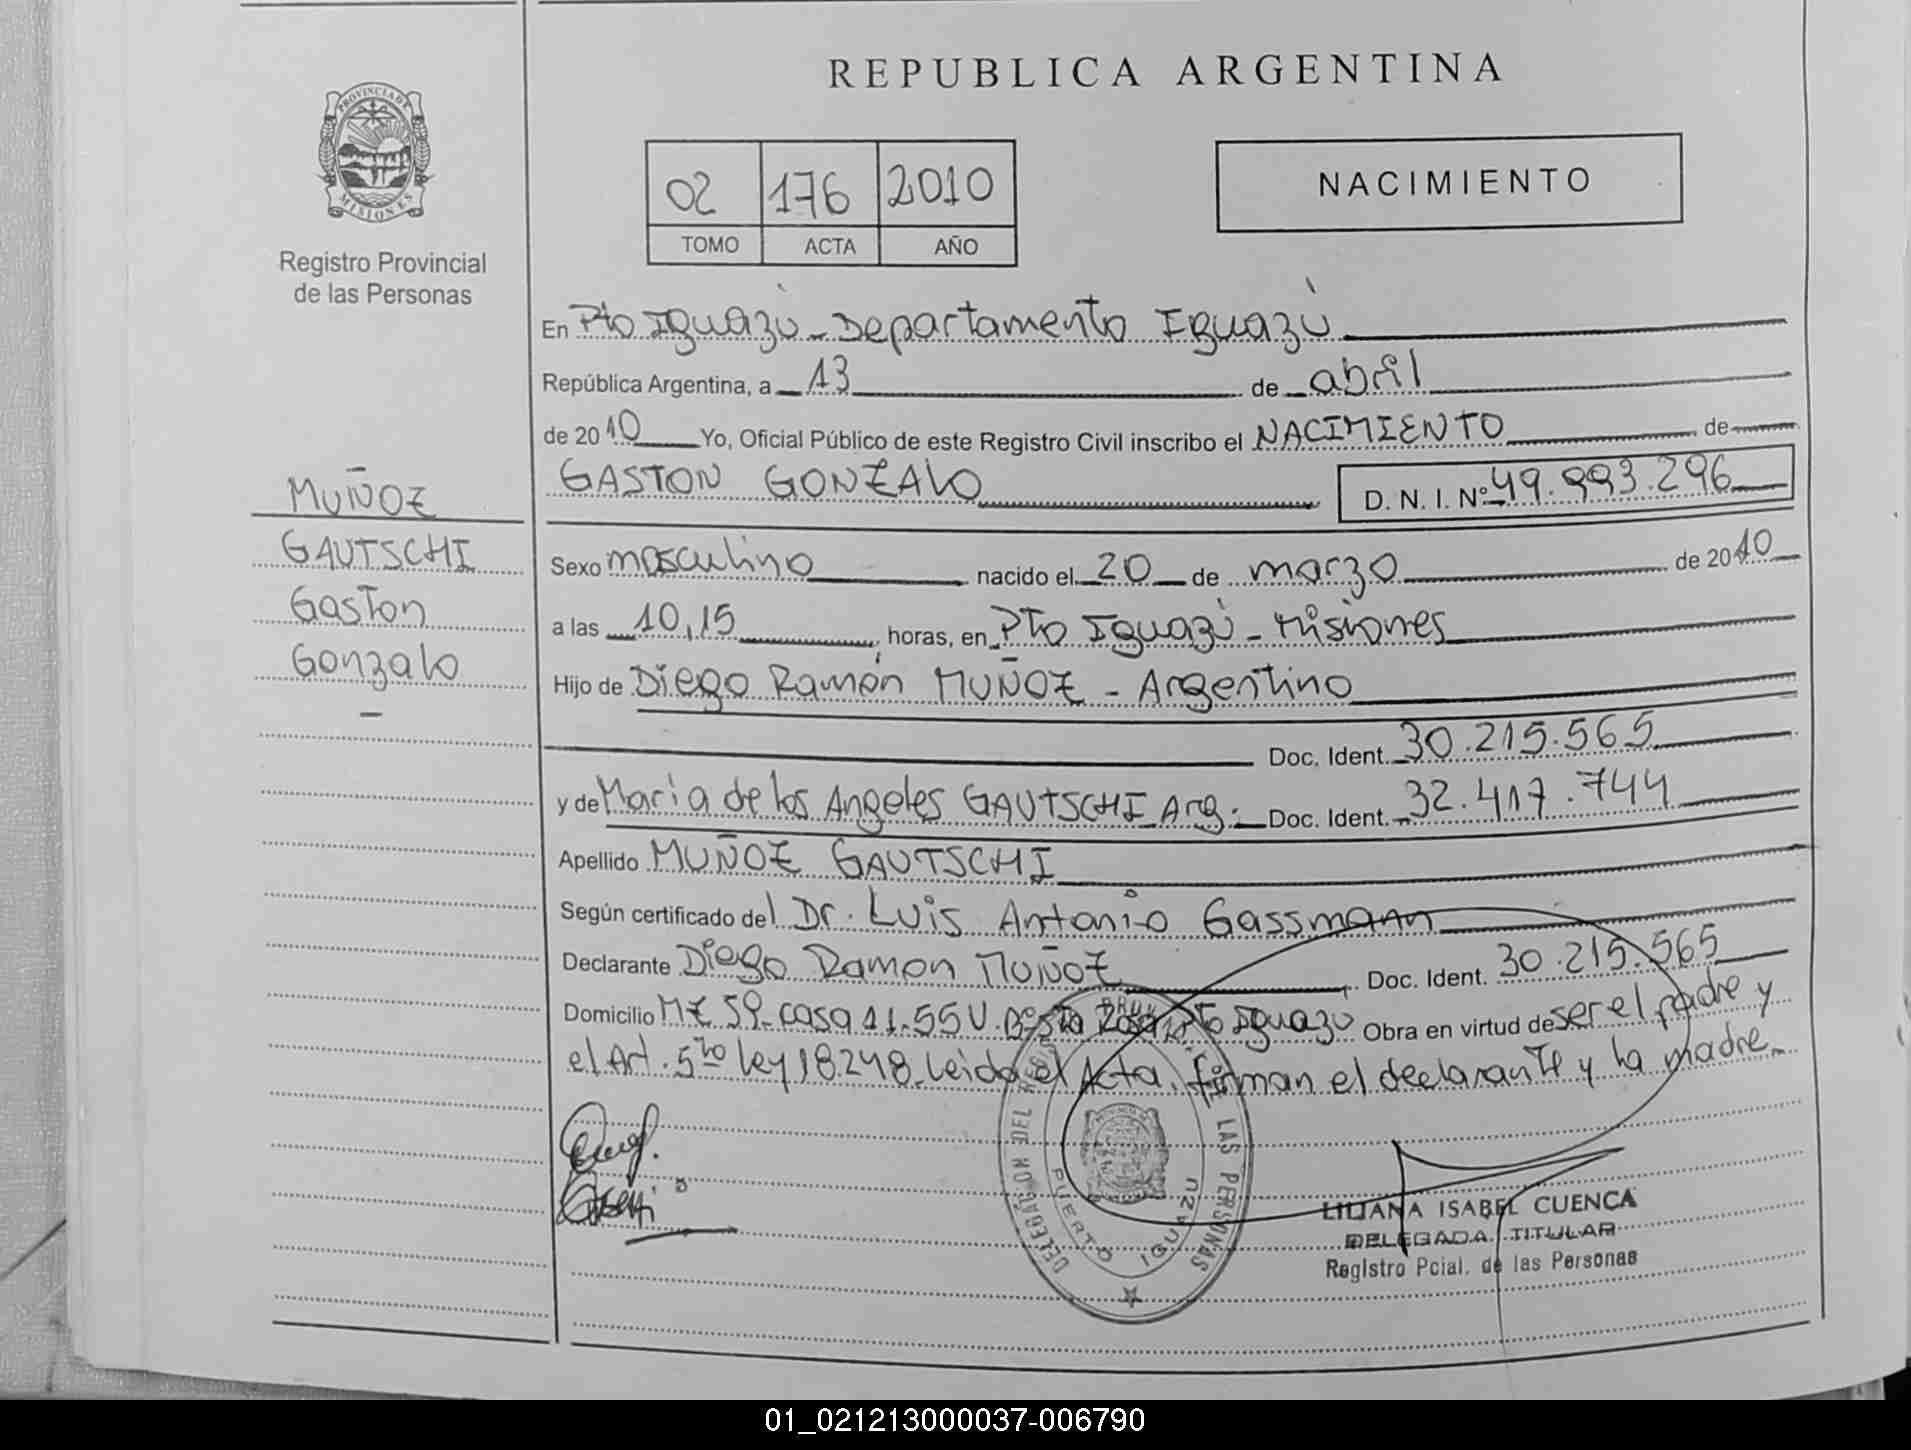 REPUBLICA ARGENTINA
PROVINCIA DE
MISIONES
Registro Provincial
de las Personas
02 176 2010
TOMO ACTA AÑO
NACIMIENTO
En Pto Iguazú - Departamento Iguazú
República Argentina, a 13 de abril
de 2010 Yo, Oficial Público de este Registro Civil inscribo el NACIMIENTO de
GASTON GONZALO D. N. I. Nº 49.993.296
MUÑOZ
GAUTSCHI
Gaston
Gonzalo
Sexo masculino nacido el 20 de marzo de 2010
a las 10,15 horas, en Pto Iguazú - Misiones
Hijo de Diego Ramón MUÑOZ - Argentino
Doc. Ident. 30.215.565
y de Maria de los Angeles GAUTSCHI Arg. Doc. Ident. 32.417.744
Apellido MUÑOZ GAUTSCHI
Según certificado del Dr. Luis Antonio Gassmann
Declarante Diego Ramon MUÑOZ Doc. Ident. 30.215.565
Domicilio MZ 59 - casa 11 - 55 V. Pto Iguazú Obra en virtud de ser el padre y
el Art. 5to ley 18248. Leida el Acta, firman el declarante y la madre
DELEGACION DEL LAS PERSONAS
PUERTO IGUAZU
LILIANA ISABEL CUENCA
DELEGADA TITULAR
Registro Pcial. de las Personas
01_021213000037-006790